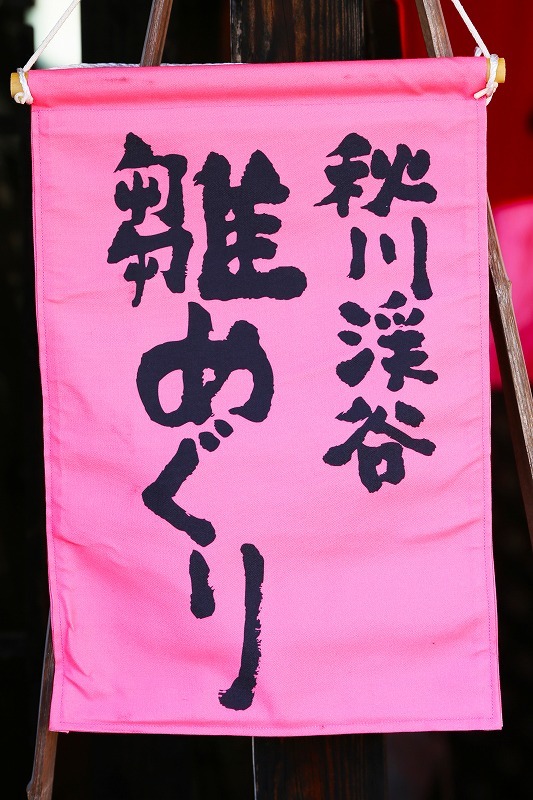 秋川渓谷
雛めぐり